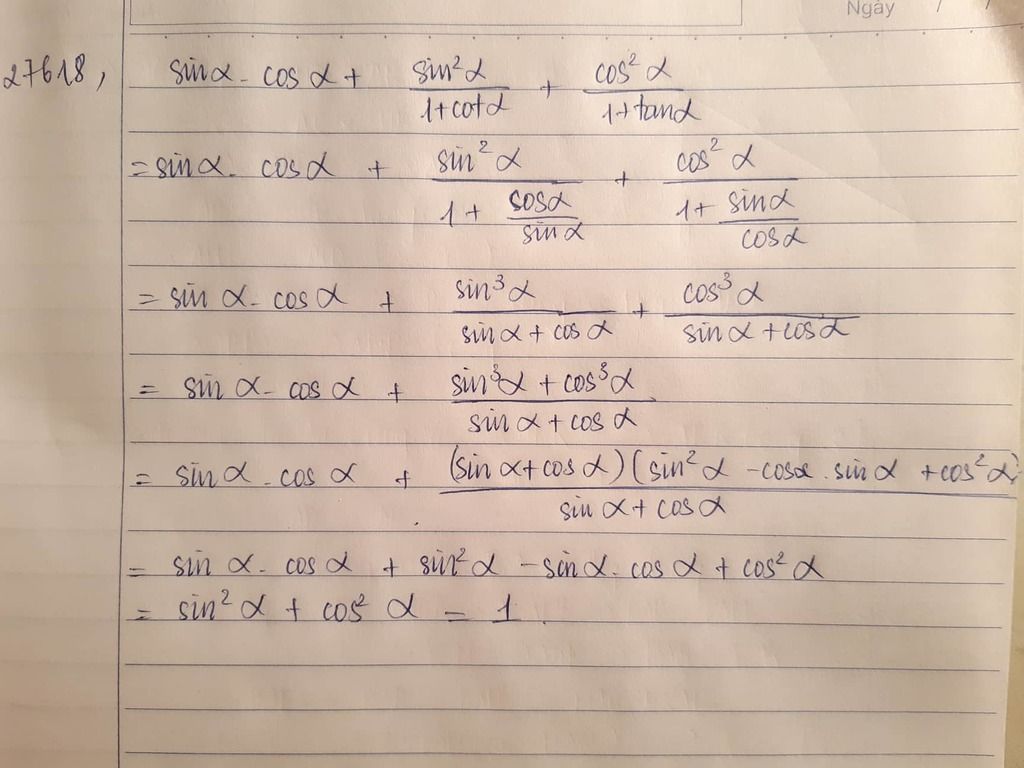 Ngày / /
27618, sinα - cos α + sin²α / (1+cotα) + cos²α / (1+tanα)
= sinα - cosα + sin²α / (1 + cosα/sinα) + cos²α / (1 + sinα/cosα)
= sin α - cos α + sin³α / (sin α + cos α) + cos³α / (sin α + cos α)
= sin α - cos α + (sin³α + cos³α) / (sin α + cos α)
= sin α . cos α + (sin α + cos α)(sin²α - cosα . sin α + cos²α) / (sin α + cos α)
= sin α . cos α + sin²α - sin α . cos α + cos²α
= sin²α + cos²α = 1.